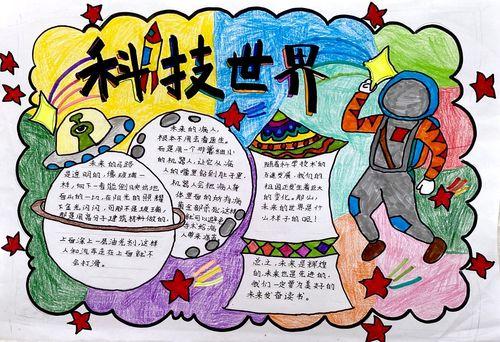 科技世界
未来的病人，
根本不用去看医生。
而是用一个形若细小
的机器人，让它从病
人的嘴里钻到肚子里，
机器人会把病人身
体里面的病毒
未来的马路
是透明的，像玻璃一
样，向下一看能倒
山的一切，在阳光的照耀
下金光闪闪，可那不是玻璃，
那是用晶分子建筑材料做的，
上面涂上一层油光剂，这样
人和汽车走在上面就不
会打滑。
随着科学技术的
迅速发展，我们的
祖国正发生着巨大
的变化。那么，
未来的世界是什
么样子的呢！
总之，未来是辉煌
的，未来也是先进的，
我们一定要为美好的
未来发奋读书。